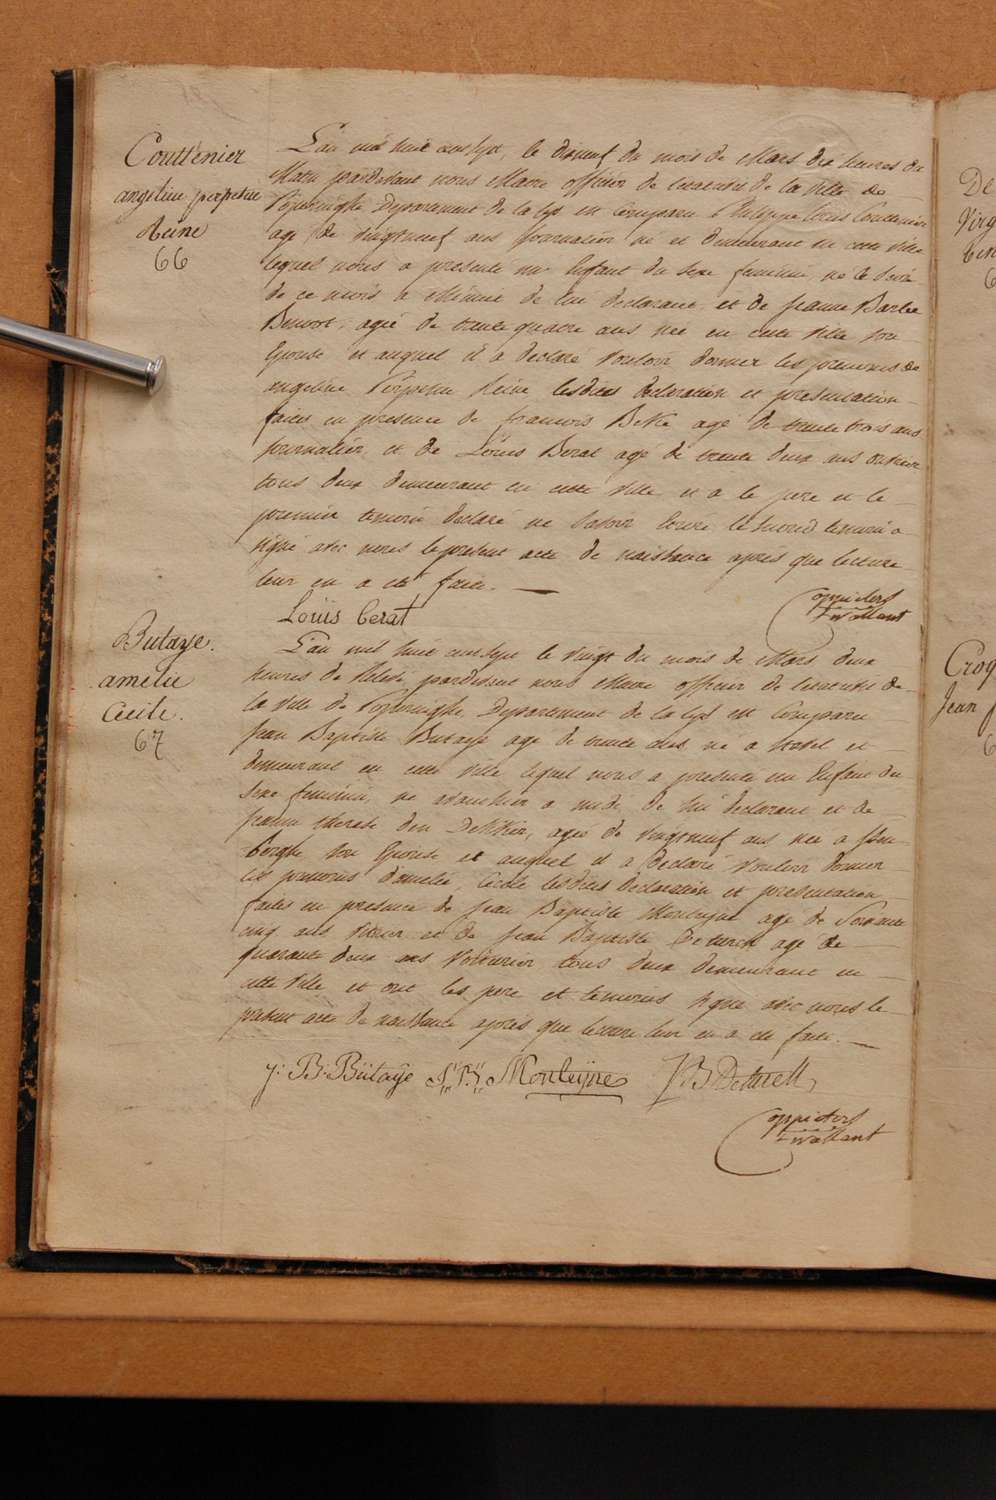 Couttenier
angeline perpetue
Reine
66
L'an mil huit cent sept, le dixneuf du mois de Mars dix heures du
Matin pardevant nous Maire officier de l'etatcivil de la ville de
Poperinghe Departement de la Lys est Comparu Philippe Louis Couttenier
agé de vingtneuf ans journalier né et demeurant en cette ville
lequel nous a presenté un Enfant du sexe feminin, né le
de ce mois a de lui declarant et de Jeanne Barbe
agée de trente quatre ans née en cette Ville son
Epouse et auquel il a declaré vouloir donner les prenoms de
angeline Perpetue Reine lesdites declaration et presentation
faites en presence de francois agé de trente trois ans
journalier, et de Louis Berat agé de trente deux ans
tous deux demeurant en cette Ville et a le pere et le
premier temoin declaré ne savoir Ecrire le second temoin a
signé avec nous le present acte de naissance après que lecture
leur en a eté faite.
Louis berat
oppieters
wallant
Butaye.
amelie
Cecile.
67
L'an mil huit cent sept le vingt du mois de Mars deux
heures de Relevé pardevant nous Maire officier de l'etatcivil de
la Ville de Poperinghe, Departement de la Lys est Comparu
Jean Baptiste Butaye agé de trente ans né a Stavel et
demeurant en cette Ville lequel nous a presenté un Enfant du
sexe feminin, né a midi, de lui declarant et de
therese agée de vingtneuf ans née a
son Epouse et auquel il a declaré Vouloir donner
les prenoms d'amelie, Cecile lesdites declaration et presentation
faites en presence de Jean Baptiste Monteyne agé de Soixante
cinq ans et de Jean Baptiste agé de
quarante deux ans Voiturier tous deux demeurant en
cette Ville et ont les pere et temoins signé avec nous le
present acte de naissance après que lecture leur en a eté faite.
j: B. Bütaÿe J: B: Monteijne JB
oppieters
wallant
De
Virg
Croq
Jean